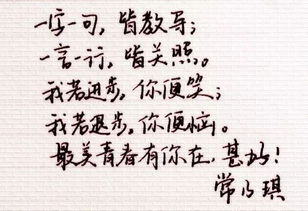 一字一句，皆教导；
一言一行，皆关照。
我若进步，你便笑；
我若退步，你便恼。
最美青春有你在，基拉！
常乃琪